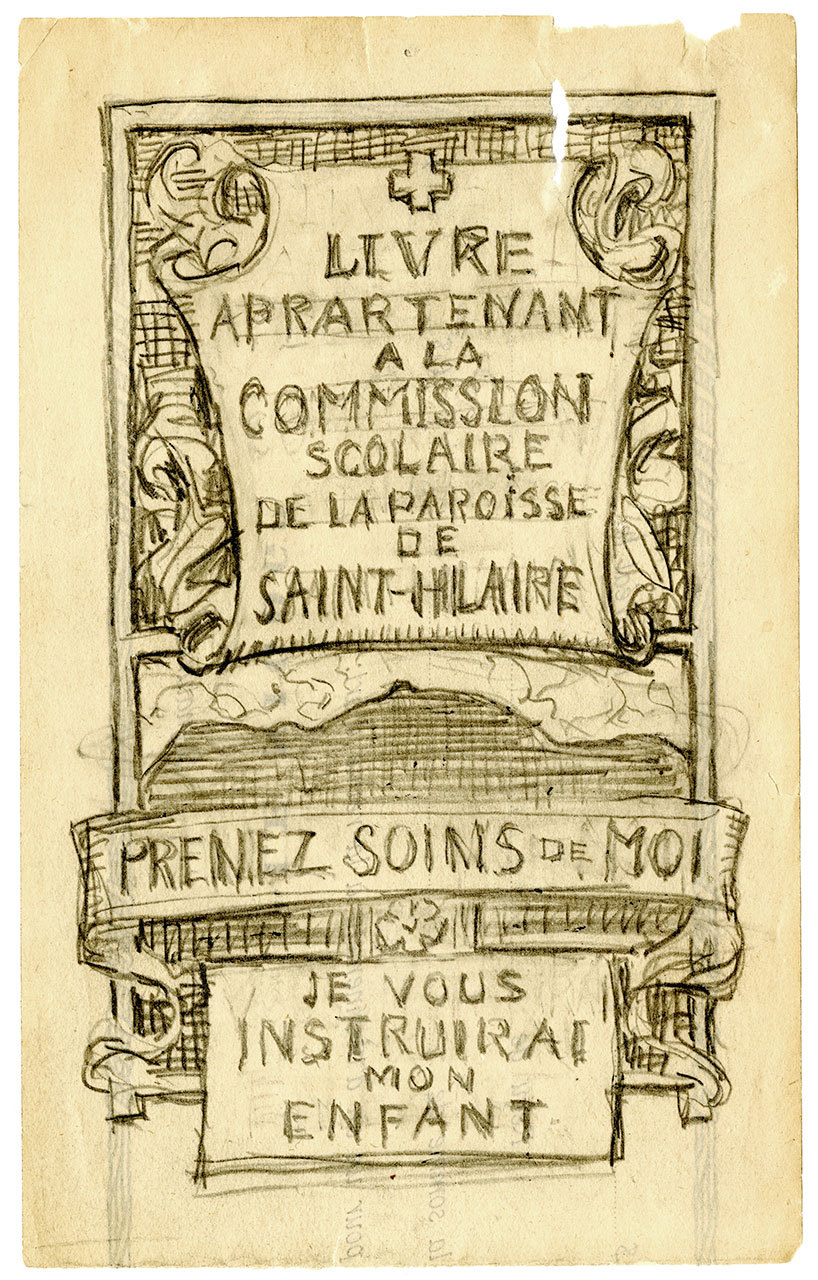 LIVRE
APPARTENANT
A LA
COMMISSION
SCOLAIRE
DE LA PAROÏSSE
DE
SAINT-HILAIRE
PRENEZ SOINS DE MOI
JE VOUS
INSTRUIRAI
MON
ENFANT